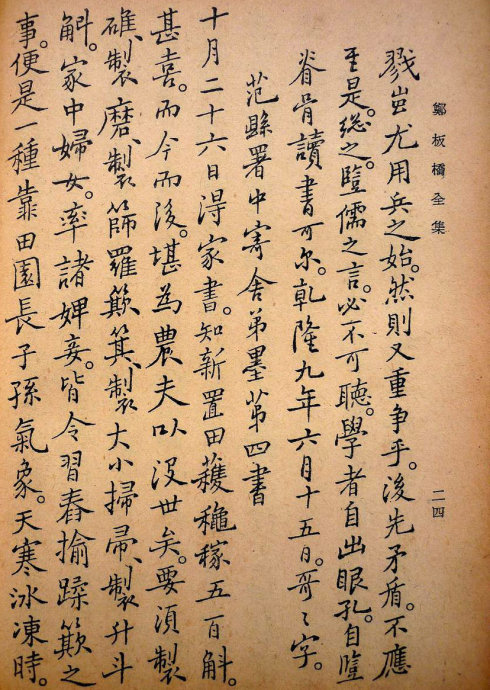 鄭板橋全集
二四
戮蚩尤用兵之始。然則又重爭乎。後先矛盾。不應
至是。總之。豎儒之言。必不可聽。學者自出眼孔。自豎
脊骨讀書可尔。乾隆九年六月十五日。哥〻字。
范縣署中寄舍弟墨第四書
十月二十六日得家書。知新置田穫穐稼五百斛。
甚喜。而今而後。堪為農夫以沒世矣。要須製
碓、製磨、製篩羅簸箕、製大小掃帚、製升斗
斛。家中婦女。率諸婢妾。皆令習舂揄蹂簸之
事。便是一種靠田園長子孫氣象。天寒冰凍時。